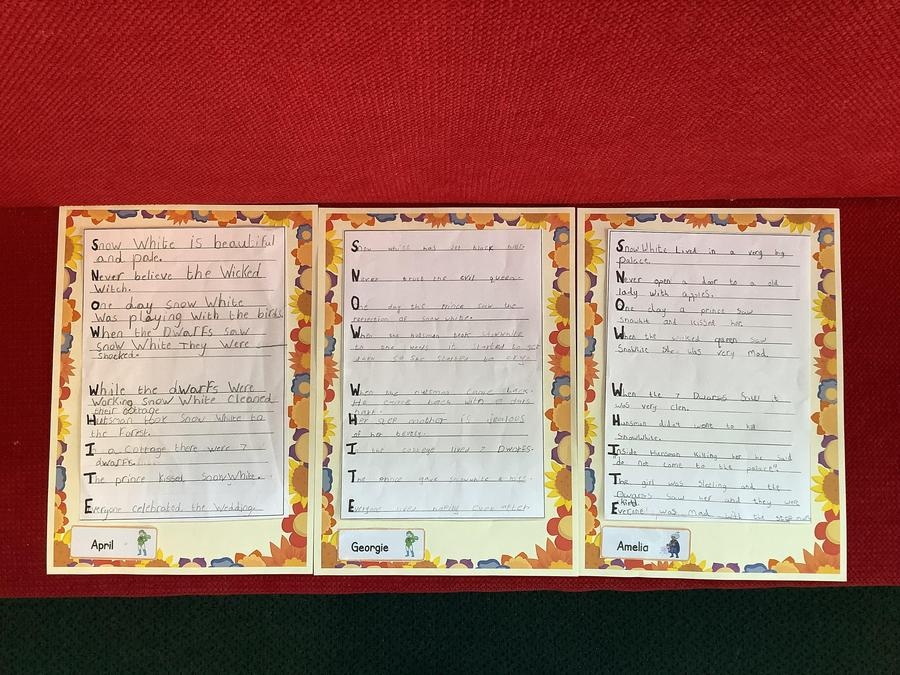 Snow White is beautiful
and pale.
Never believe the Wicked
Witch.
One day snow White
Was playing With the birds
When the DWarfs saw
snow White They Were
shocked.
While the dwarfs Were
Working Snow White Cleaned
their cottage
Hutsman took Snow White to
the Forest.
In a Cottage there were 7
dwarfs.
The prince kissed SnowWhite.
Everyone celebrated the Wedding.
April
Snow white has jet black
Never trust the evil queen.
One day the Prince saw the
reflection of snow white.
When the hutsman took
to the woods it started to get
dark so she started to
When the hutsman came back.
He came back with a
Her step mother is jealous
of her
In the cottege lived 7 Dwarfs.
The Prince gave snowwhite a kiss.
Everyone lived happily ever after.
Georgie
SnowWhite Lived in a very big
palace.
Never open a door to a old
lady with apples.
One day a prince saw
snowhit and kissed her.
When the wicked queen saw
SnoWhite She was very mad.
When the 7 Dwarfs saw it
was very clen.
Hunsman didn't want to kill
SnowWhite.
Inside Hunsman Killing her he said
do not come to the palace".
The girl was sleeting and the
Dwarfs saw her and they were
kind.
Everone was Mad with the step mum
Amelia